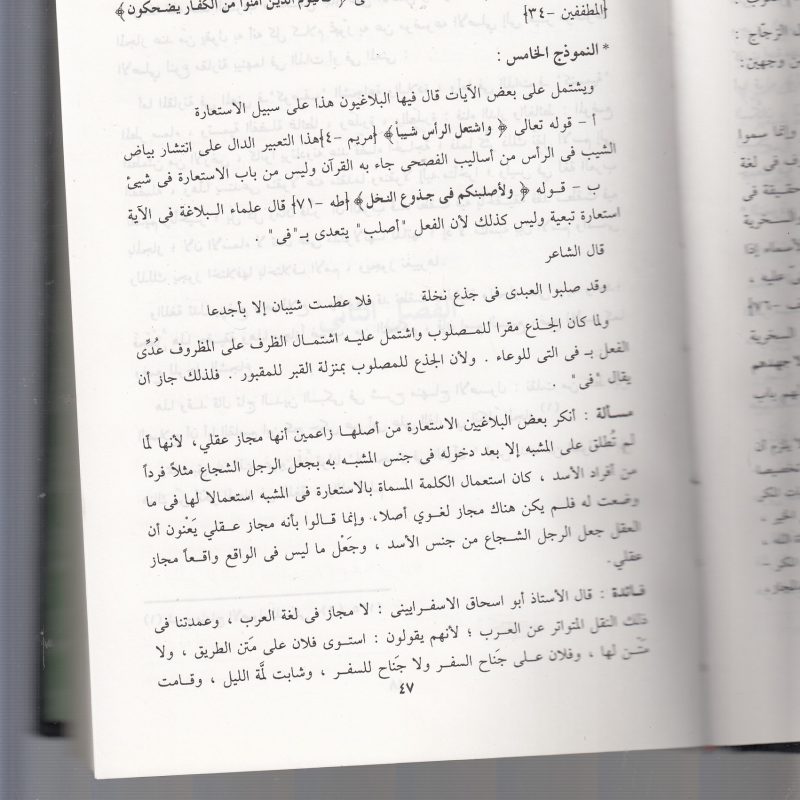 فاليوم الذين آمنوا من الكفار يضحكون ﴾
{المطففين -٣٤}
* النموذج الخامس :
ويشتمل على بعض الآيات قال فيها البلاغيون هذا على سبيل الاستعارة
أ - قوله تعالى ﴿ واشتعل الرأس شيباً ﴾ {مريم -٤}هذا التعبير الدال على انتشار بياض
الشيب فى الرأس من أساليب الفصحى جاء به القرآن وليس من باب الاستعارة فى شيئ
ب - قوله ﴿ ولأصلبنكم فى جذوع النخل ﴾ {طه -٧١} قال علماء البلاغة فى الآية
استعارة تبعية وليس كذلك لأن الفعل "أصلب" يتعدى بـ"فى" .
قال الشاعر
وقد صلبوا العبدى فى جذع نخلة فلا عطست شيبان إلا بأجدعا
ولما كان الجذع مقرا للمصلوب واشتمل عليه اشتمال الظرف على المظروف عُدِّىَ
الفعل بـ فى التى للوعاء . ولأن الجذع للمصلوب بمنزلة القبر للمقبور . فلذلك جاز أن
يقال "فى" .
مسألة : أنكر بعض البلاغيين الاستعارة من أصلها زاعمين أنها مجاز عقلي، لأنها لمَّا
لم تُطلق على المشبه إلا بعد دخوله فى جنس المشبه به بجعل الرجل الشجاع مثلاً فرداً
من أفراد الأسد ، كان استعمال الكلمة المسماة بالاستعارة فى المشبه استعمالا لها فى ما
وضعت له فلم يكن هناك مجاز لغوي أصلا، وإنما قالوا بأنه مجاز عقلي يَعْنون أن
العقل جعل الرجل الشجاع من جنس الأسد ، وجَعْل ما ليس فى الواقع واقعاً مجاز
عقلي.
فائدة : قال الأستاذ أبو اسحاق الاسفرايينى : لا مجاز فى لغة العرب ، وعمدتنا فى
ذلك النقل المتواتر عن العرب ؛ لأنهم يقولون : استوى فلان على مَتن الطريق ، ولا
مَتْن لها ، وفلان على جَناح السفر ولا جَناح للسفر ، وشابت لمَّة الليل ، وقامت
٤٧
الزجاج :
وجهين:
وإنما سموا
فى لغة
حقيقة فى
السخرية
الأسماء إذا
عليه ،
-٧٦}
السخرية
باب
لا يلزم أن
المكر
الخير ،
الله ،
المكر -